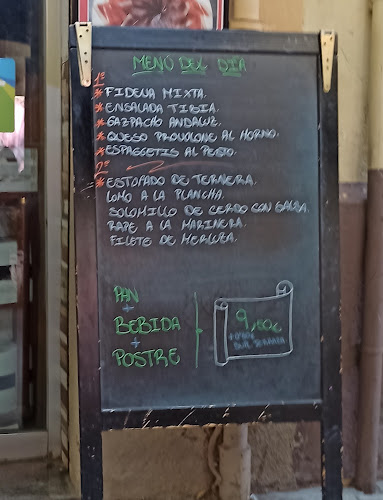 MENÚ DEL DIA
1º
* FIDEUA MIXTA.
* ENSALADA TIBIA.
* GAZPACHO ANDALUZ.
* QUESO PROVOLONE AL HORNO.
* ESPAGGETIS AL PESTO.
2º
* ESTOFADO DE TERNERA.
LOMO A LA PLANCHA.
SOLOMILLO DE CERDO CON SALSA.
RAPE A LA MARINERA.
FILETE DE MERLUZA.
PAN
+
BEBIDA
+
POSTRE
9,00€